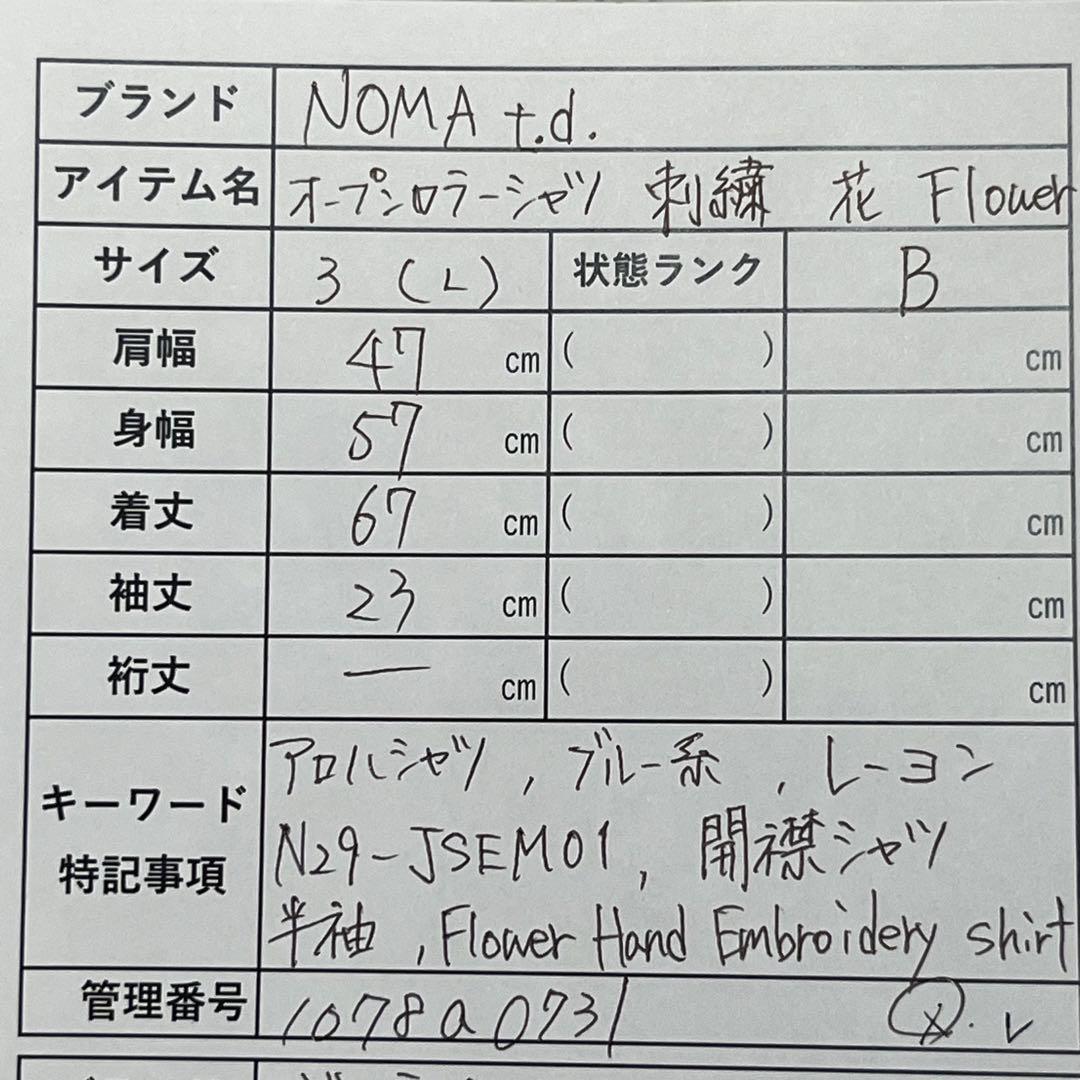 ブランド NOMA t.d.
アイテム名 オープンカラーシャツ 刺繍 花 Flower
サイズ 3 (L) 状態ランク B
肩幅 47 cm ( ) cm
身幅 57 cm ( ) cm
着丈 67 cm ( ) cm
袖丈 23 cm ( ) cm
裄丈 — cm ( ) cm
キーワード 特記事項
アロハシャツ, ブルー系, レーヨン
N29-JSEM01, 開襟シャツ
半袖, Flower Hand Embroidery shirt
管理番号 1078a0731